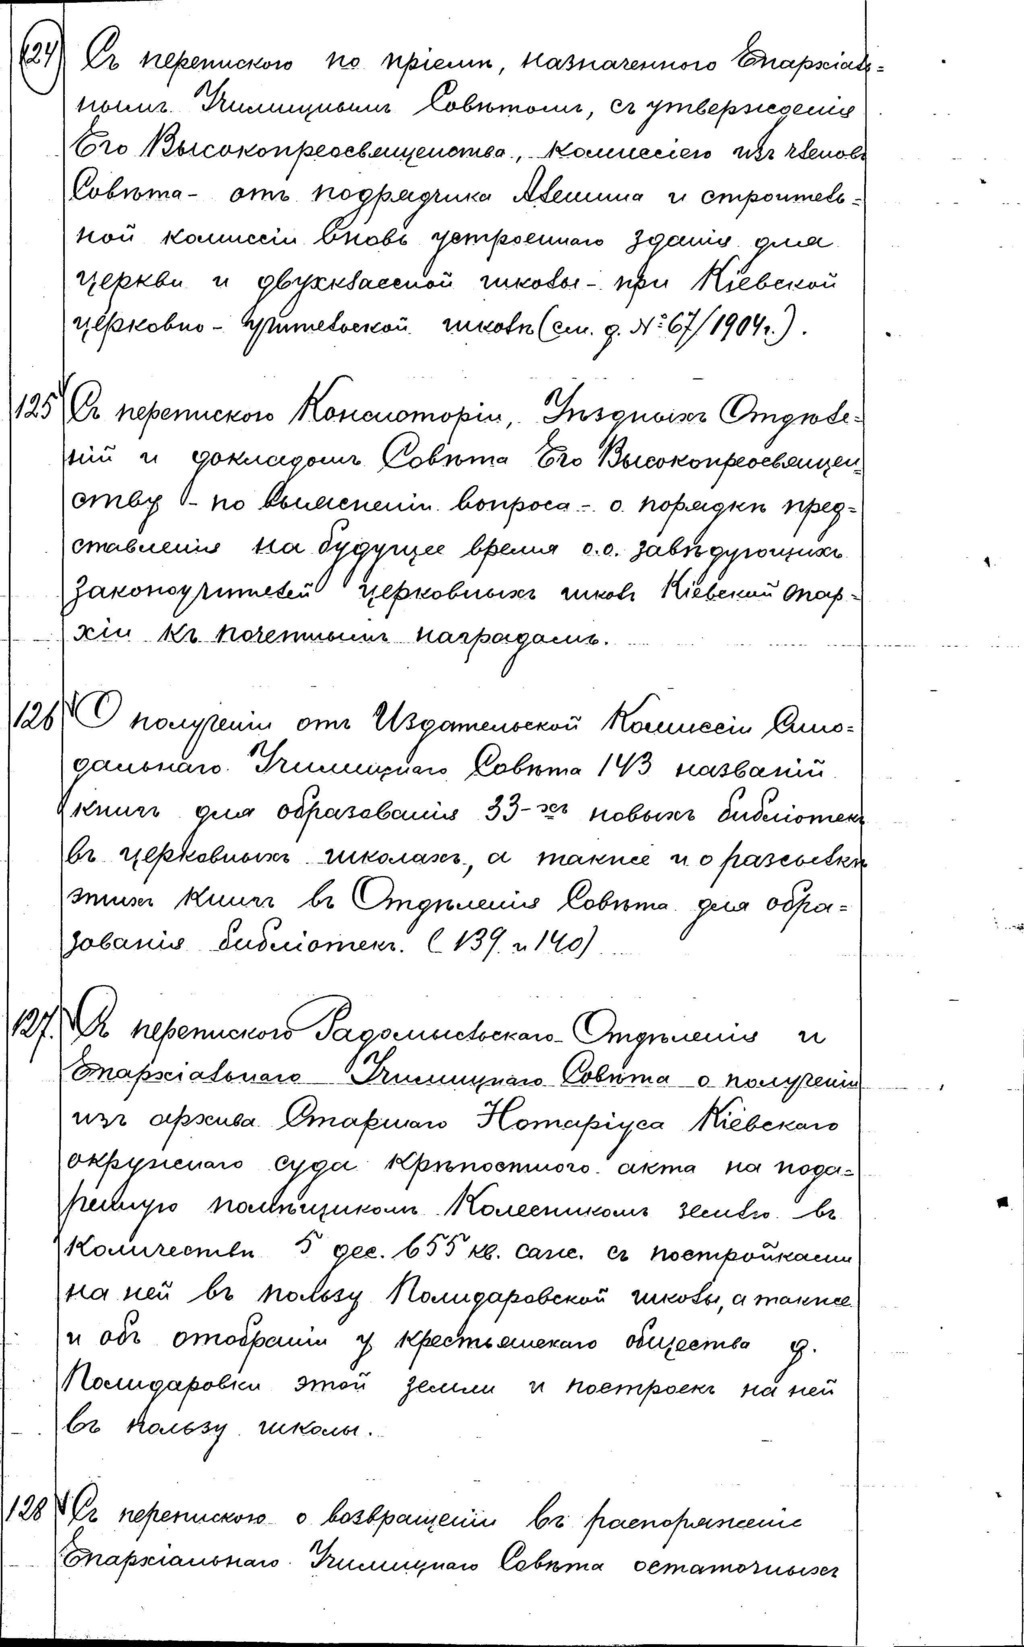 124 Съ перепискою по пріему, назначенною Епархіаль=
нымъ Училищнымъ Совѣтомъ, съ утвержденія
Его Высокопреосвященства, комиссіею изъ членовъ
Совѣта - отъ подрядчика Алешина и строитель=
ной комиссіи вновь устроеннаго зданія для
церкви и двухклассной школы - при Кіевской
церковно-учительской школѣ (см. д. № 67/1904 г.).
125 Съ перепискою Консисторіи, Уѣздныхъ Отдѣле=
ній и докладомъ Совѣта Его Высокопреосвящен=
ству - по выясненіи вопроса - о порядкѣ пред=
ставленія на будущее время о.о. завѣдующихъ
законоучителей церковныхъ школъ Кіевской епар=
хіи къ почетнымъ наградамъ.
126 О полученіи отъ Издательской Комиссіи Сино=
дальнаго Училищнаго Совѣта 143 названій
книгъ для образованія 33-хъ новыхъ библіотекъ
въ церковныхъ школахъ, а также и о разсылкѣ
этихъ книгъ въ Отдѣленія Совѣта для обра=
зованія библіотекъ. (139 и 140)
127. Съ перепискою Радомысльскаго Отдѣленія и
Епархіальнаго Училищнаго Совѣта о полученіи
изъ архива Старшаго Нотаріуса Кіевскаго
окружнаго суда крѣпостного акта на пода=
ренную помѣщикомъ Колесникомъ землю въ
количествѣ 5 дес. 655 кв. саж. съ постройками
на ней въ пользу Полидаровской школы, а также
и объ отобраніи у крестьянскаго общества д.
Полидаровки этой земли и построекъ на ней
въ пользу школы.
128 Съ перепискою о возвращеніи въ распоряженіе
Епархіальнаго Училищнаго Совѣта остаточныхъ